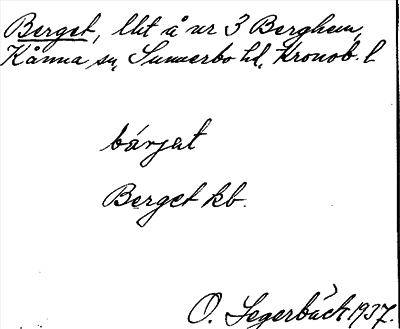 Berget, lht å nr 3 Berghem,
Kånna sn, Sunnerbo hd, Kronob. l
bárjat
Berget kb.
O. Segerbäck 1937.